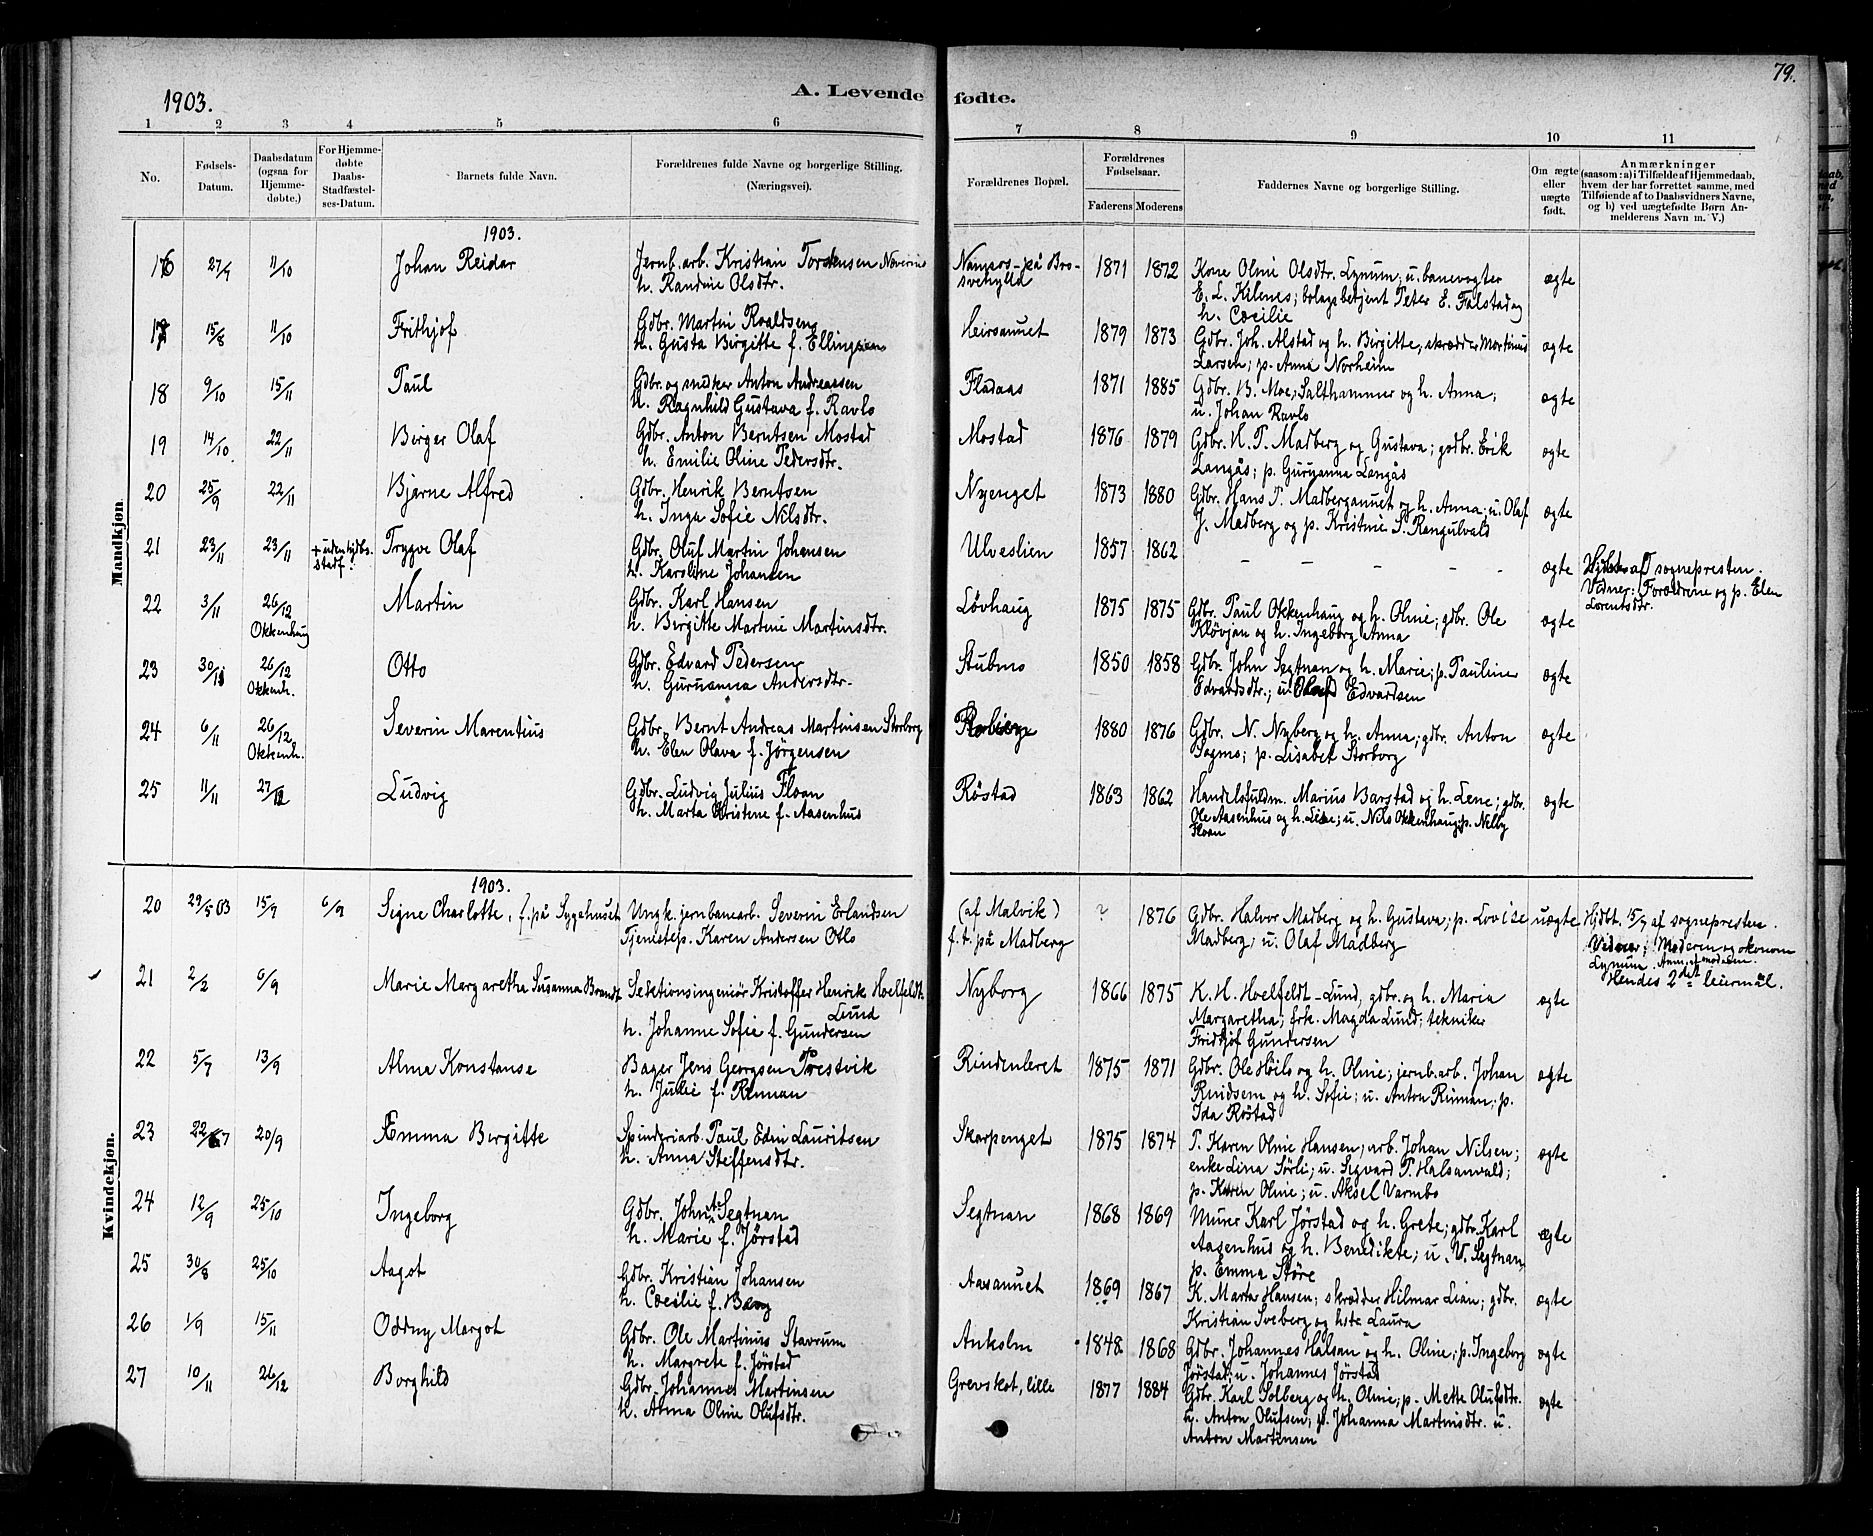 79.
1903.
A. Levende fødte.
1 2 3 4 5 6 7 8 9 10 11
No.
Fødsels-Datum.
Daabsdatum (ogsaa for Hjemmedøbte.)
For Hjemmedøbte Daabs-Stadfæstelses-Datum.
Barnets fulde Navn.
Forældrenes fulde Navne og borgerlige Stilling. (Næringsvei).
Forældrenes Bopæl.
Forældrenes Fødselsaar.
Faderens Moderens
Faddernes Navne og borgerlige Stilling.
Om ægte eller uægte født.
Anmærkninger
(saasom: a) i Tilfælde af Hjemmedaab, hvem der har forrettet samme, med Tilføiende af to Daabsvidners Navne, og b) ved uægtefødte Børn Anmelderens Navn m. V.)
Mandkjøn.
1903.
16 27/9 11/10 Johan Reidar Jernb.arb. Kristian Torstensen 1871 1872 Kone Oline Olsdtr. Lynum; u. banevogter ægte
h. Randine Olsdtr. E. L. Kilnes; bolagsbetjent Peter E. Falstad og
h. Cecilie
17 15/8 11/10 Frithjof Gdbr. Martin Roaldsen Heirsaunet 1879 1873 Gdbr. Joh. Alstad og h. Birgitte, skrædder Martinus ægte
h. Gusta Birgitte f. Ellingsen Larsen; p. Anna Norheim
18 9/10 15/11 Paul Gdbr. og snedker Anton Andreassen Fladaas 1871 1885 Gdbr. B. Moe; Salthammer og h. Anna; ægte
h. Ragnhild Gustava f. Ravlo u. Johan Ravlo
19 14/10 22/11 Birger Olaf Gdbr. Anton Berntsen Mostad Mostad 1876 1879 Gdbr. H. P. Madberg og Gustava; gdbr. Erik ægte
h. Emilie Oline Pedersdtr. Langås; p. Guryanna Langås
20 25/9 22/11 Bjarne Alfred Gdbr. Henrik Berntsen Nyenget 1873 1880 Gdbr. Hans P. Madbergaunet og h. Anna; u. Olaf ægte
h. Inga Sofie Nilsdtr. J. Madberg og p. Kristine S. Rangulvald
21 23/11 23/11 + uden kjdbs. stadf. Trygve Olaf Gdbr. Oluf Martin Johansen Ulveslien 1857 1862 - - - - - ægte Hjdbt. af sognepresten.
h. Karoline Johansen Vidner: Forældrene og p. Elen Lorentsdtr.
22 3/11 26/12 Okkenhaug Martin Gdbr. Karl Hansen Løvhaug 1875 1875 Gdbr. Paul Okkenhaug og h. Oline; gdbr. Ole ægte
h. Birgitte Martine Martinsdtr. Kløvjan og h. Ingeborg Anna
23 30/11 26/12 Okkenh. Otto Gdbr. Edvard Pedersen Stubmo 1850 1858 Gdbr. John Segtnan og h. Marie; p. Pauline ægte
h. Guruanna Andersdtr. Edvardsdtr.; u. Olaf Edvardsen
24 6/11 26/12 Okkenh. Severin Marentius Gdbr. Bernt Andreas Martinsen Storborg 1880 1876 Gdbr. N. Nyberg og h. Anna; gdbr. Anton ægte
h. Elen Olava f. Jörgensen Sagmo; p. Lisabet Storborg
25 11/11 27/12 Ludvig Gdbr. Ludvig Julius Floan Röstad 1863 1862 Handelsfuldm. Marius Barstad og h. Lene; gdbr. ægte
h. Marta Kristene f. Aasenhus Ole Aasenhus og h. Line; u. Nils Okkenhaug; p. Nelly
Floan
Kvindekjøn.
1903.
20 29/5 03 15/7 6/9 Signe Charlotte, f. på Sygehuset Ungk. jernbanearb. Severin Erlandsen (af Malvik) ? 1876 Gdbr. Halvor Madberg og h. Gustava; p. Lovise uægte Hjdbt. 15/7 af sognepresten.
Tjenestep. Karen Andersen Otlo f. t. på Madberg Madberg; u. Olaf Madberg Vidner: Moderen og økonom
Lynum. Anm. af moderen.
Hendes 2det leiermål.
21 2/2 6/9 Marie Margaretha Susanna Brandt Sektionsingeniör Kristoffer Henrik Hoelfeldt- Nyborg 1866 1875 K. H. Hoelfeldt-Lund, gdbr. og h. Maria ægte
Lund Margaretha; frk. Magda Lund; tekniker
h. Johanne Sofie f. Gundersen Fridtjöf Gundersen
22 5/7 13/9 Alma Konstanse Bager Jens Georgsen Prestvik Rindenleret 1875 1871 Gdbr. Ole Höilo og h. Oline; jernb.arb. Johan ægte
h. Julie f. Rinnan Rindsem og h. Sofie; u. Anton Rinnan; p.
Ida Röstad
23 22/7 20/9 Emma Birgitte Spinderiarb. Paul Edin Lauritsen Skarpenget 1875 1874 P. Karen Oline Hansen; arb. Johan Nilsen; ægte
h. Anna Steffensdtr. enke Lina Sørli; u. Sigvard P. Halsanvald;
p. Karen Oline; u. Aksel Varmbo
24 12/9 25/10 Ingeborg Gdbr. John A. Segtnan Segtnan 1868 1869 Murer Karl Jörstad og h. Grete; gdbr. Karl ægte
h. Marie f. Jörstad Aasenhus og h. Benedikte; u. V. Segtnan,
p. Emma Störe
25 30/8 25/10 Aagot Gdbr. Kristian Johansen Aasaunet 1869 1867 K. Marta Hansen; skrædder Hilmar Lian; gdbr. ægte
h. Cecilie f. Berg Kristian Sveberg og hste Laura
26 1/9 15/11 Oddny Margot Gdbr. Ole Martinus Stavrum Ankolm 1848 1868 Gdbr. Johannes Halsan og h. Oline; p. Ingeborg ægte
h. Margrete f. Jörstad Jörstad; u. Johannes Jörstad
27 10/11 26/12 Borghild Gdbr. Johannes Martinsen Grevskot, lille 1877 1884 Gdbr. Karl Solberg og h. Oline; p. Mette Olufsdtr. ægte
h. Anna Oline Olufsdtr. u. Anton Olufsen; p. Johanna Martinsdtr. u.
Anton Martinsen